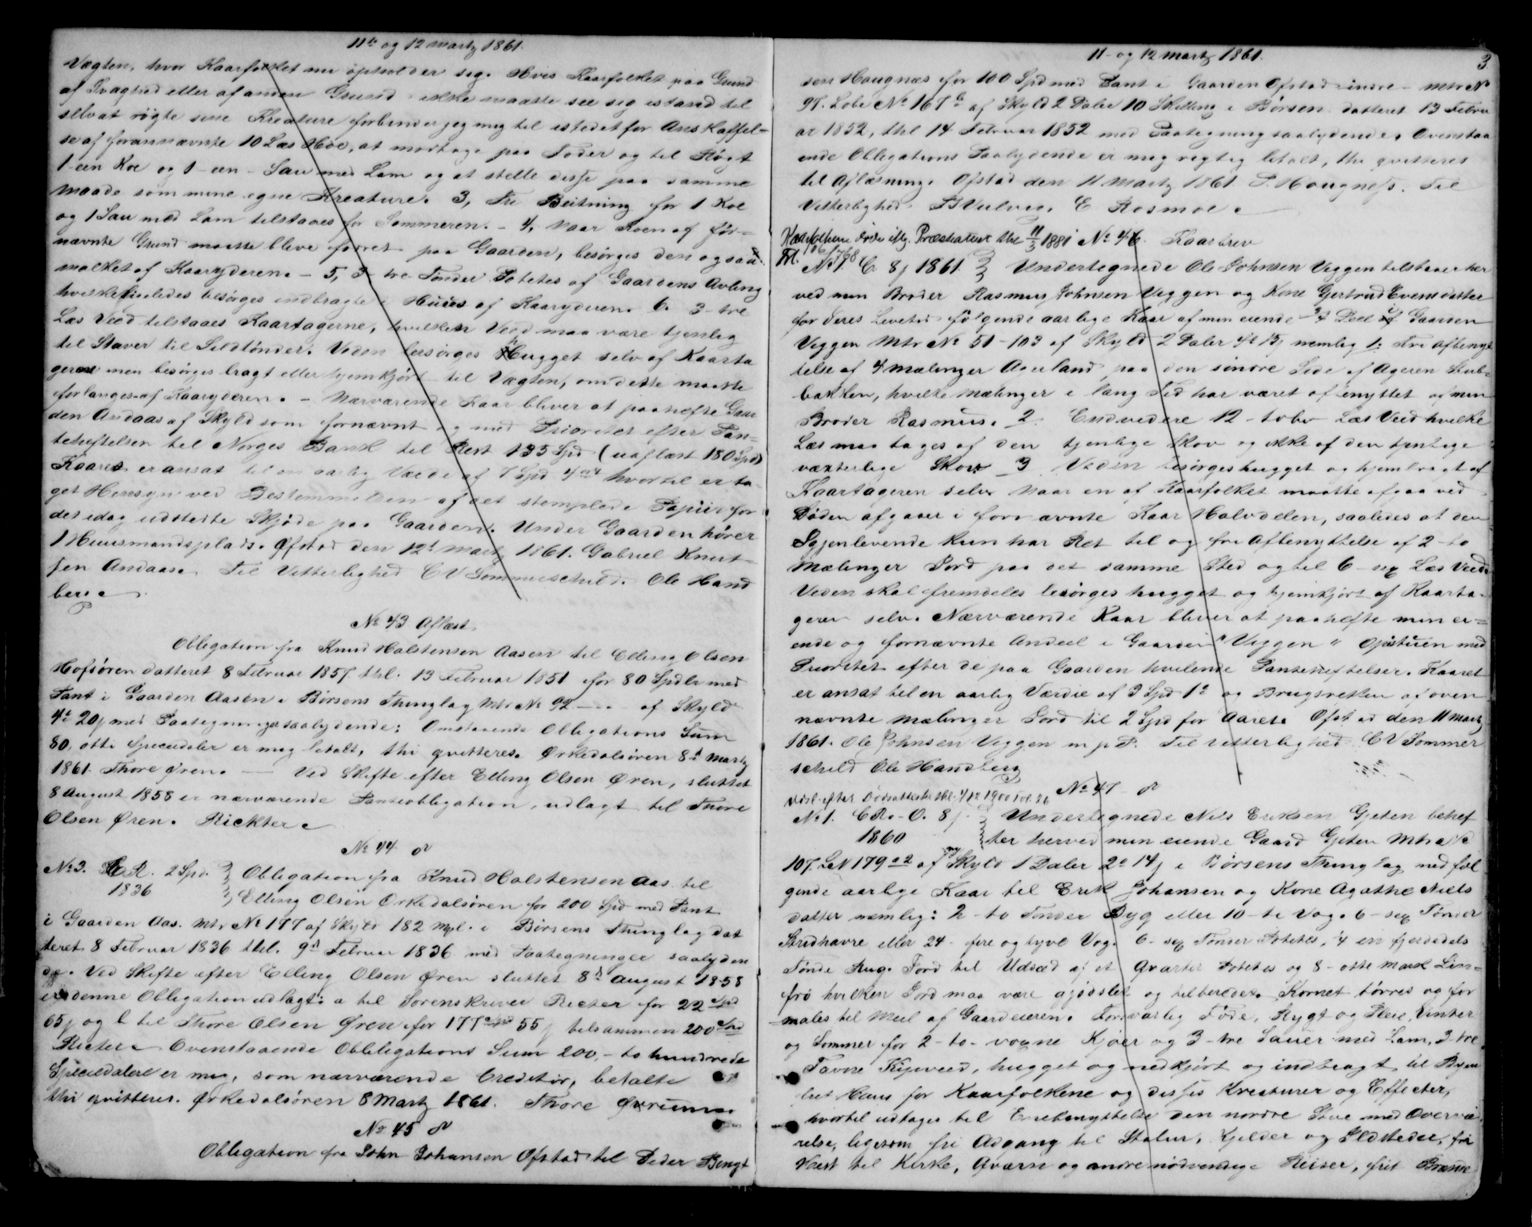 11te og 12 martz 1861.
Vægten, hvor Kaarfolket nu opholder sig. Hvis Kaarfolket paa Grund
af Svaghed eller af anden Grund ikke maatte see sig istand til
selv at røgte sine Kreature forbinder jeg mig til istedet for Anskaffel-
se af foranævnte 10 Læs Høe, at modtage paa Foder og til Røgt
1 een Koe og 1 - een - Sau med Lam og at stelle disse paa samme
maade som mine egne Kreature. 3, Fri Beitning for 1 Koe
og 1 Sau med Lam tilstaaes for Sommeren. - 4, Naar Koen af før-
nævnte Grund maatte bleve foret paa Gaarden, besørges den ogsaa
malket af Kaaryderen. - 5, 3 tre Tønder Potetes af Gaardens Avling
hvilke ligeledes besørges indbragte i Huus af Kaaryderen. 6. 3 tre
Læs Veed tilstaaes Kaartagerne, hvilken Veed maa være tjenlig
til Staver til Sildtønder. Veden besørges Hugget selv af Kaarta
gerne men besørges bragt eller hjemkjørt til Vægten, om dette maatte
forlanges af Kaaryderen. - Nærværende Kaar bliver at paahefte Gaar
den Andaas af Skyld som fornævnt og med Prioritet efter Pan-
teheftelsen til Norges Bank til Rest 135 Spd (uaflæst 180 Spd)
Kaaret er ansat til en aarlig Værdie af 7 Spd 4 ort hvortil er ta-
get Hensyn ved Bestemmelsen af det stemplede Papiir for
det idag udstedte Skjøde paa Gaarden. Under Gaarden hører
1 Huusmandsplads. Ofstad den 12te Martz 1861. Gabriel Knut-
sen Andaas. Til Vitterlighed C V Sommerschield. Ole Hand
berg
No 43 Aflæst.
Obligation fra Knud Halstensen Aasen til Elling Olsen
Hofsøren datteret 8 Februar 1851 thl. 13 Februar 1851 for 80 Spdlr med
Pant i Gaarden Aasen i Børsens Thinglag Mtr No 92 --- af Skyld
4t 20 med Paategning saalydende: Omstaaende Obligations Sum
80 otti Speciedaler er mig betalt, thi qvitteres. Ørkedalsøren 8de Martz
1861. Thore Øren. — Ved Skifte efter Elling Olsen Øren, sluttet
8 August 1858 er nærværende Panteobligation, udlagt til Thore
Olsen Øren. Richter
No 44
No 3. C.R. 2 Spd. Obligation fra Knud Halstensen Aas til
1836 Elling Olsen Orkedalsøren for 200 Spd med Pant
i Gaarden Aas. Mtr No 177 af Skyld 182 Mpl. i Børsens Thinglag dat
teret 8 Februar 1836 thl. 9de Februar 1836 med Paategninger saalyden
de. Ved Skifte efter Elling Olsen Øren sluttet 8de August 1858
er denne Obligation udlagt: a til Sorenskriver Richter for 22 Spd
65 og b til Thore Olsen Øren for 177 Spd 55 tilsammen 200 Spd
Richter. Ovenstaaende Obligations Sum 200,- to hundrede
Speciedaler er mig, som nærværende Creditor, betalte
thi qvitteres. Ørkedalsøren 8 Martz 1861. Thore Øren
No 45
Obligation fra John Johansen Ofstad til Peder Bengt
11- og 12 martz 1861.
3
sen Hougnæs for 100 Spd med Pant i Gaarden Ofstad indre - Mtr No
97. Løbe No 167 b af Skyld 2 Daler 10 Skilling i Børsen datteret 13 Febru
ar 1852, thl. 14 Februar 1852 med Paategning saalydende. Ovenstaa
ende Obligations Paalydende er mig rigtig betalt, thi qvitteres
til Aflæsning. Ofstad den 11 Martz 1861 P. Hougnæs. Til
Vitterlighed E Rosmoe.
11/3 1881 No 46. Kaarbrev
No 1 C 8 1861 Undertegnede Ole Johnsen Viggen tilstaar her
ved min Broder Rasmus Johnsen Viggen og Kone Gjertrud Evensdatter
for deres Levetid følgende aarlige Kaar af min eiende Deel af Gaarden
Viggen Mtr No 51-103 af Skyld 2 Daler nemlig 1: fri Afbenyt
telse af 4 Mælinger Agerland paa den søndre Side af Ageren
bakken, hvilke Mælinger i lang Tid har været afbenyttet af min
Broder Rasmus. 2 Endvidere 12 - tolv Læs Veed hvilke
Læs maa tages af den tjenlige Skov og ikke af den
væxterlige Skov 3 Veden besørges hugget og hjembragt af
Kaartageren selv. Naar en af Kaarfolket maatte afgaa ved
Døden afgaaer i fornævnte Kaar Halvdelen, saaledes at den
Igjenlevende kun har Ret til og fri Afbenyttelse af 2 - to
Mælinger Jord paa det samme Sted og til 6 - sex Læs Veed
Veden skal fremdeles besørges hugget og hjemkjørt af Kaarta-
geren selv. Nærværende Kaar bliver at paahefte min ei-
ende og fornævnte Andeel i Gaarden "Viggen" med
Prioritet efter de paa Gaarden hvilende Panteheftelser. Kaaret
er ansat til en aarlig Værdie af 3 Spd 1t og Brugsretten af oven
nævnte Mælinger Jord til 2 Spd for Aaret. Ofstad den 11 Martz
1861. Ole Johnsen Viggen m.p.P. Til vitterlighed C V Sommer
schield Ole Handberg
No 47
No 1. C.R. - O. 8 Undertegnede Nils Eriksen Gjeten behef
1860 ter herved min eiende Gaard Gjeten Mtr No
107 L No 179 af Skyld 1 Daler 2t 14 i Børsens Thinglag med føl
gende aarlige Kaar til Erik Johansen og Kone Agathe Niels
datter nemlig: 2 - to Tønder Byg eller 10 - ti Vog. 6 - sex Tønder
Bredhavre eller 24 - fire og tyve Vog. 6 - sex Tønder Potetes, 1/4 en fjerdedels
Tønde Rug. Jord til Udsæd af et Qvarter Potetes og 8 - otte Mark Lin-
frø hvilken Jord maa være gjødslet og tilberedet. Kornet tørres og for
males til Meel af Gaardeieren. Forsvarlig Føde, Rygt og Pleie, Vinter
og Sommer for 2 - to - voxne Kjøer og 3 - tre Sauer med Lam, 3 tre
Favne Kipveed, hugget og nedkjørt og indbragt til
Huus for Kaarfolkene og disses Kreaturer og Effecter,
hvortil udtages til Enebenyttelse den nordre Stue med Overvæ
relse, ligesom fri Adgang til Stabur, Kjelder og Ildstedet, fri
Hest til Kirke, Qværn og andre nødvendige Reiser, frit Brænde